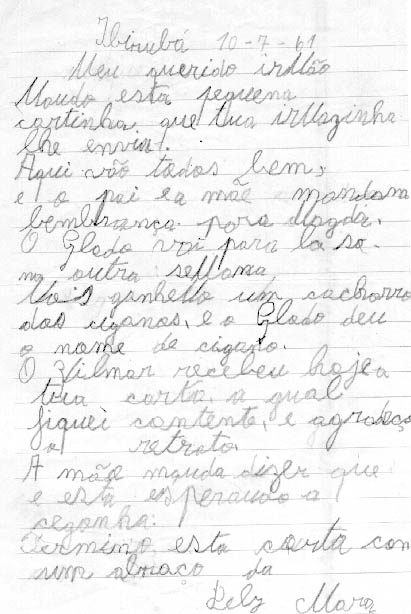 Ibirubá 10-7-61
Meu querido irmão
Mando esta pequena
cartinha que tua irmazinha
lhe envia.
Aqui vão todos bem,
e o pai e a mãe mandam
lembrança para Magda.
O Glado vai para la so
na outra semana
Nois ganhemo um cachorro
dos ciganos, e o Glado deu
o nome de cigano.
O Vilmar recebeu hoje a
tua carta, a qual
fiquei contente, e agradeço
o retrato.
A mãe manda dizer que
e está esperando a
cegonha.
Termino esta carta com
um abraço da
Mara